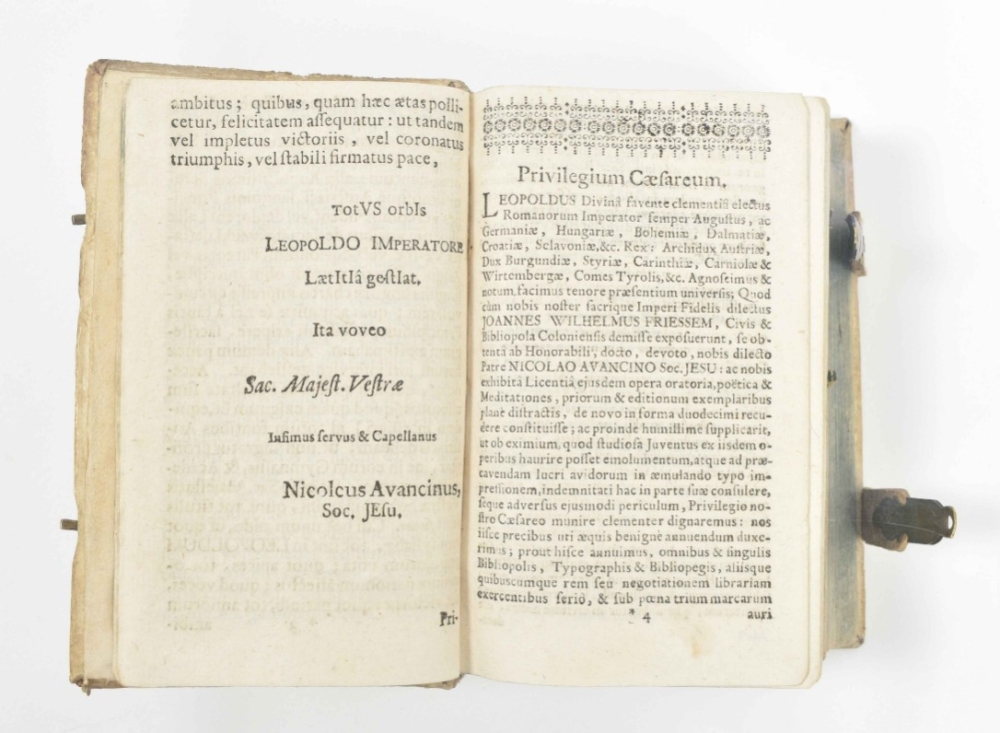 ambitus; quibus, quam hæc ætas polli-
cetur, felicitatem aſſequatur: ut tandem
vel impletus victoriis, vel coronatus
triumphis, vel ſtabili firmatus pace,
TotVS orbIs
LEOPOLDO IMPERATORE
LætItIâ geſtIat.
Ita voveo
Sac. Majeſt. Veſtræ
Infimus ſervus & Capellanus
Nicolcus Avancinus,
Soc. JEſu.
Pri-
Privilegium Cæſareum.
LEOPOLDUS Divinâ favente clementiâ electus
Romanorum Imperator ſemper Auguſtus, ac
Germaniæ, Hungariæ, Bohemiæ, Dalmatiæ,
Croatiæ, Sclavoniæ,&c. Rex: Archidux Auſtriæ,
Dux Burgundiæ, Styriæ, Carinthiæ, Carniolæ &
Wirtembergæ, Comes Tyrolis,&c. Agnoſcimus &
notum facimus tenore præſentium univerſis; Quod
cùm nobis noſter ſacrique Imperi Fidelis dilectus
JOANNES WILHELMUS FRIESSEM, Civis &
Bibliopola Colonienſis demiſſe expoſuerunt, ſe ob-
tentâ ab Honorabili, docto, devoto, nobis dilecto
Patre NICOLAO AVANCINO Soc. JESU: ac nobis
exhibitâ Licentiâ ejuſdem opera oratoria, poëtica &
Meditationes, priorum & editionum exemplaribus
planè diſtractis, de novo in forma duodecimi recu-
dere conſtituiſſe; ac proinde humillimè ſupplicarit,
ut ob eximium, quod ſtudioſa Juventus ex iisdem o-
peribus haurire poſſet emolumentum, atque ad præ-
cavendam lucri avidorum in æmulando typo im-
preſſionem, indemnitati hac in parte ſuæ conſulere,
ſeque adverſus ejuſmodi periculum, Privilegio no-
ſtro Cæſareo munire clementer dignaremur: nos
iiſce precibus uti æquis benignè annuendum duxe-
rimus; prout hiſce annuimus, omnibus & ſingulis
Bibliopolis, Typographis & Bibliopegis, aliisque
quibuscumque rem ſeu negotiationem librariam
exercentibus ſeriò, & ſub pœna trium marcarum
* 4 auri